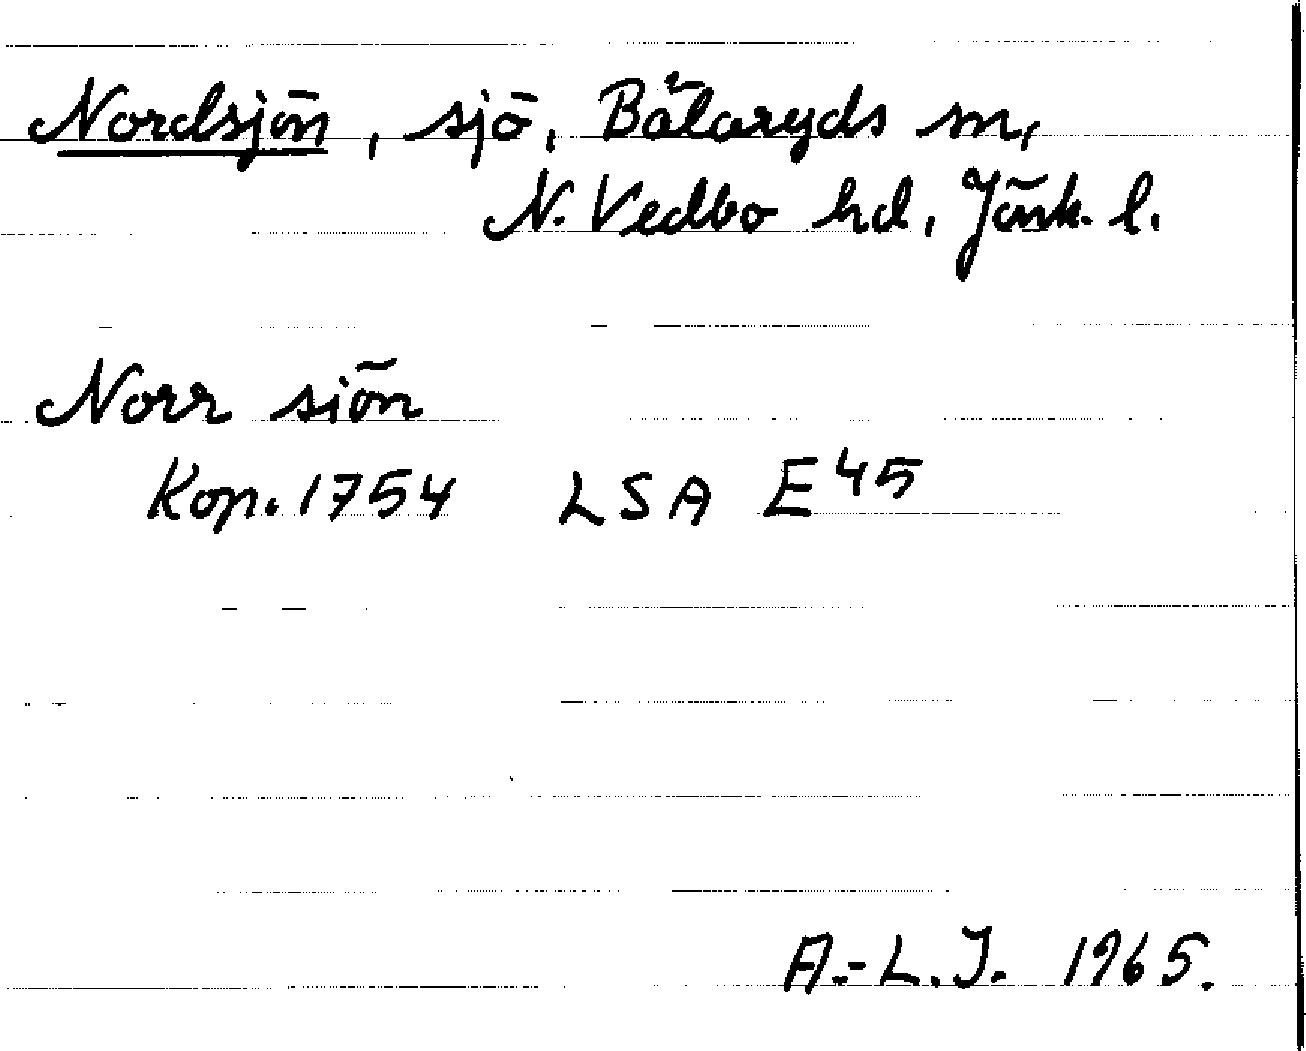 Nordsjön, sjö, Bälaryds sn,
N. Vedbo hd, Jönk. l.
Norr siön
Kop. 1754 LSA E 45
A.-L.J. 1965.